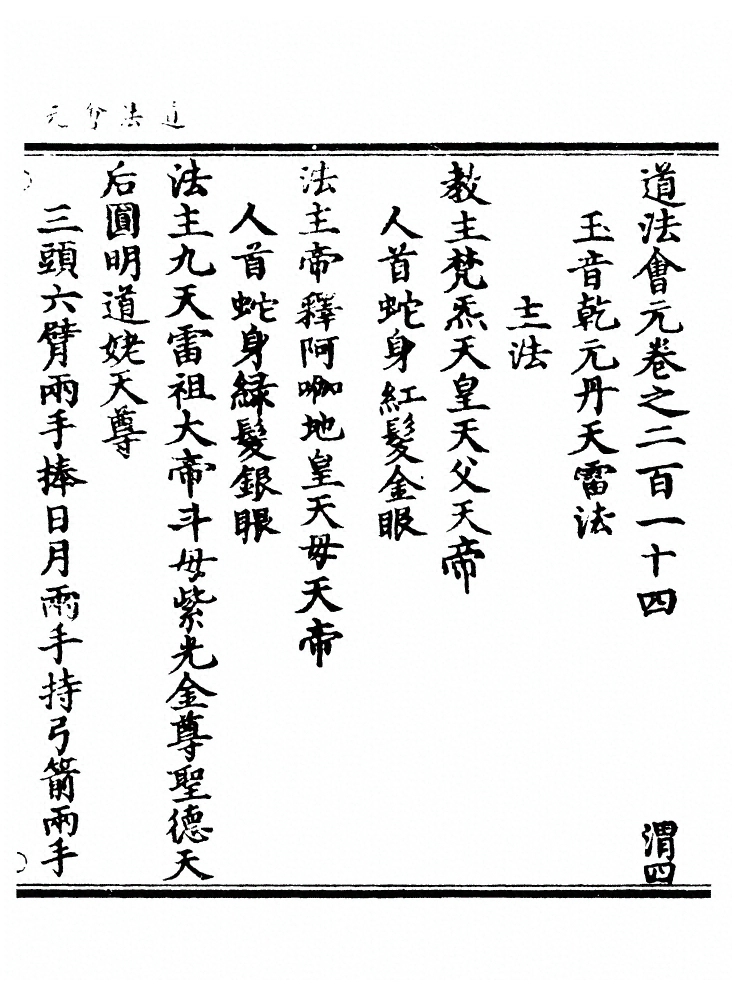 道法會元
道法會元卷之二百一十四 渭四
玉音乾元丹天雷法
主法
教主梵炁天皇天父天帝
人首蛇身紅髮金眼
法主帝釋阿咖地皇天母天帝
人首蛇身緑髮銀眼
法主九天雷祖大帝斗母紫光金尊聖德天
后圓明道姥天尊
三頭六臂兩手捧日月兩手持弓箭兩手